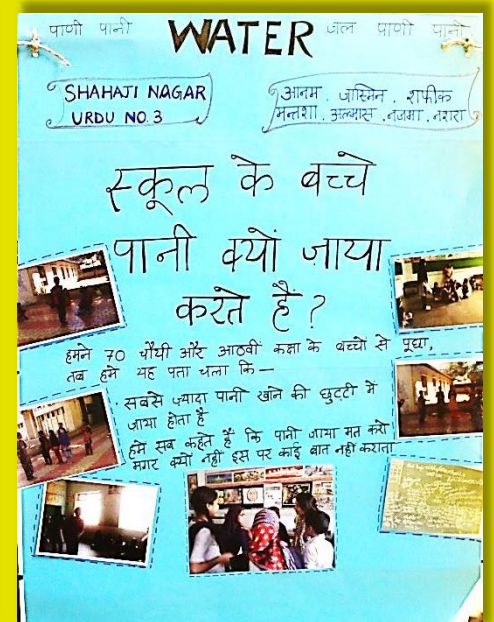 पाणी पानी WATER जल पाणी पानी
SHAHAJI NAGAR
URDU NO. 3
आनम . जास्मिन . राफीक
मन्तशा . अल्मास . नजमा . नशरा
स्कूल के बच्चे
पानी क्यों ज़ाया
करते हैं ?
हमने 70 चौथी और आठवीं कक्षा के बच्चों से पूछा,
तब हमे यह पता चला कि —
. सबसे ज़्यादा पानी खाने की छुट्टी मे
जाया होता है
हमे सब कहते हैं कि पानी जाया मत करो
मगर क्यों नही इस पर कोई बात नही कराता